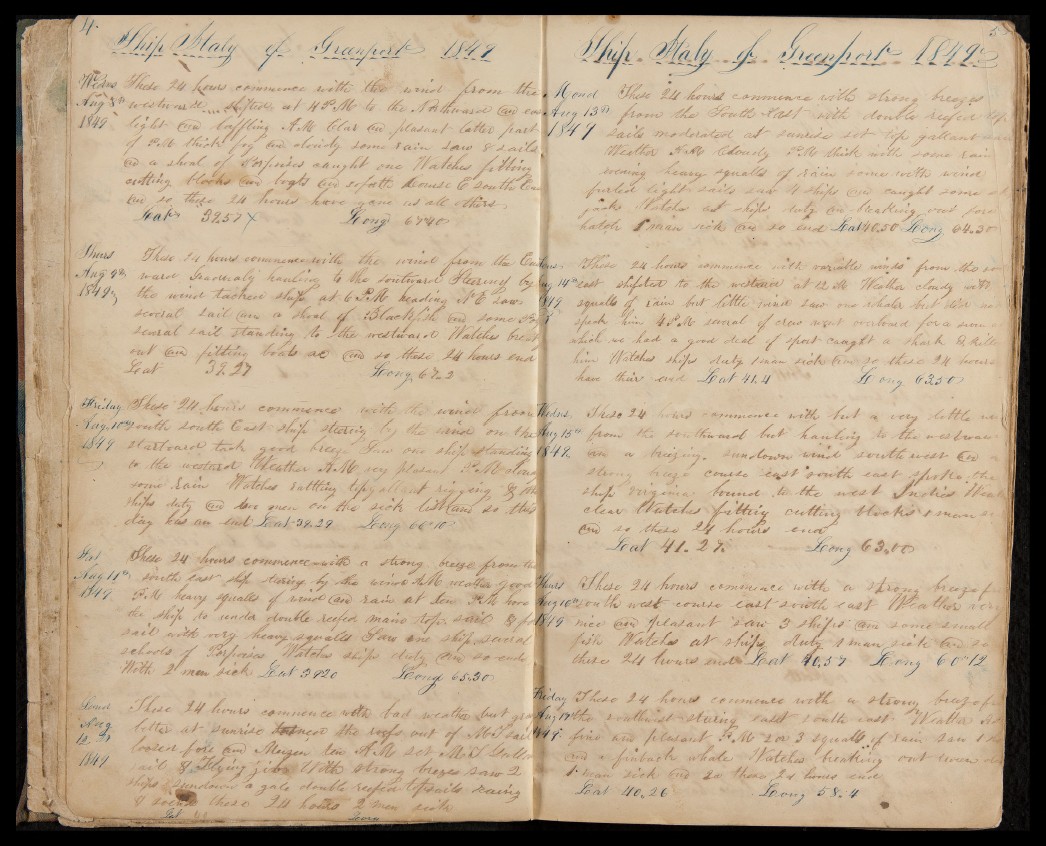 4
Ship Italy of Greenport 1849
Wedns These 24 hours commence with the wind from the
Aug 8th westward shifted at 4 P.M to the Northward and
1849 light and baffling A.M Clear and pleasant latter part
of P.M thick fog and cloudy some rain saw 8 sails
and a shoal of Porpoises caught one Watches fitting
cutting blocks and boats and so forth Course E South
and so these 24 hours have gane us all others
Lat 39.57 Long 67.40
Thurs These 24 hours commence with the wind from the
Aug 9th ward Generaly hauling to the soutward Steering by
1849 the wind tacked ship at 6 P.M heading N E saw
several sail and a shoal of Blackfish and some
several sail standing to the westward Watches
out and fitting boats &c and so these 24 hours end
Lat 39.27 Long 67.2
Friday These 24 hours commence with the wind from
Aug. 10th South South East ship steering by the wind on the
1849 starboard tack good breeze Saw one ship standing
to the westward Weather A.M very pleasant P.M
some rain Watches rattling up rigging &
ships duty and two men on the sick list and so this
day has an end Lat 39.29 Long 66.10
Sat These 24 hours commence with a strong breeze from the
Aug 11th south east ship steering by the wind A.M weather good
1849 P.M heavy squalls of wind and rain at ten P.M hove
the ship to under double reefed main top sail &
sail with very heavy squalls Saw one ship several
schools of Porpoises Watches ships duty and so ends
With 2 men sick Lat 39.20 Long 65.30
These 24 hours commence with bad weather but
Aug better at sunrise the reefs out of
12 loosed fore and Mizzen ten A.M set
1849 sail & Flying jibs With strong breezes saw 2
ships sundown a gale double reefed Topsails
these 24 hours 2 men sick
Lat Long
5
Ship Italy of Greenport 1849
Mond These 24 hours commence with strong breezes
Aug 13th from the South East with double reefed
1849 sails moderated at sunrise set top gallant
Weather A.M Cloudy P.M thick with some rain
heavy squalls of rain some with wind
furled light sails saw 4 ships and caught some
jacks Watches at ships duty and breaking out fore
hatch 1 man sick and so end Lat 40.50 Long 64.30
These 24 hours commence with variable winds from the
Aug 14th east shifted to the westward at 12 M Weather cloudy with
1849 squalls of rain but little wind saw one whaler but did
speak him 4 P.M several of crew went overboard for a swim
which we had a good deal of sport caught a shark &
him Watches ships duty 1 man sick and so these 24 hours
have their end Lat 41.4 Long 63.30
Wedns These 24 hours commence with but a very little
Aug 15th from the southward but hauling to the westward
1849 and a breezing. sundown wind south west and a
strong breeze course east south east spoke the
ship Virginia bound to the west Indies
clear Watches fitting cutting blocks 1 man
and so these 24 hours end
Lat 41.27. Long 63.00
Thurs These 24 hours commence with a strong breeze
Aug 16th south west course east south east Weather
1849 nice and pleasant saw 3 ships and some small
fish Watches at ships duty 1 man sick and so
these 24 hours end Lat 40.37 Long 60.12
Friday These 24 hours commence with a strong breeze
Aug 17th the southwest steering east south east Weather
1849 fine and pleasant P.M 2 or 3 squalls of rain saw
and a finback whale Watches breaking out
1 man sick and so these 24 hours end
Lat 40.26 Long 58.4